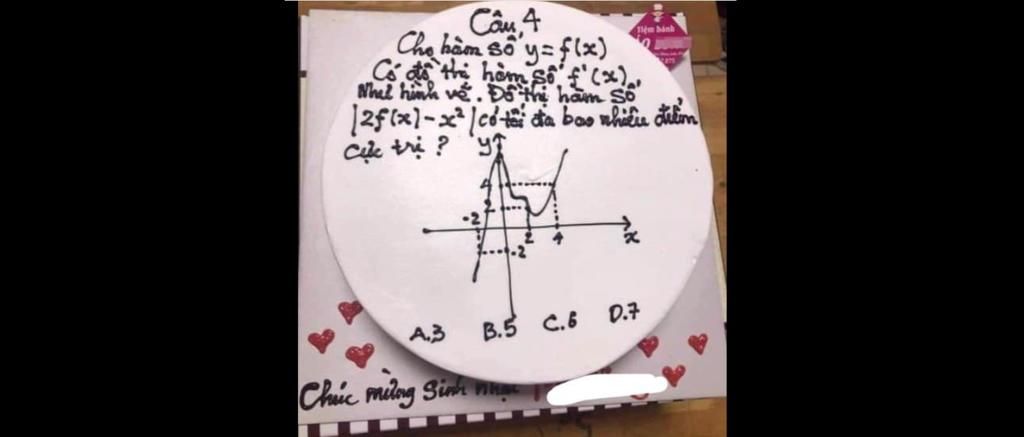 Câu 4
Cho hàm số y = f(x)
Có đồ thị hàm số f'(x)
Như hình vẽ. Đồ thị hàm số
|2f(x) - x² | có tối đa bao nhiêu điểm
cực trị ?
y
4
2
-2
2
4
x
-2
A.3 B.5 C.6 D.7
Chúc mừng Sinh nhật
Tiệm bánh